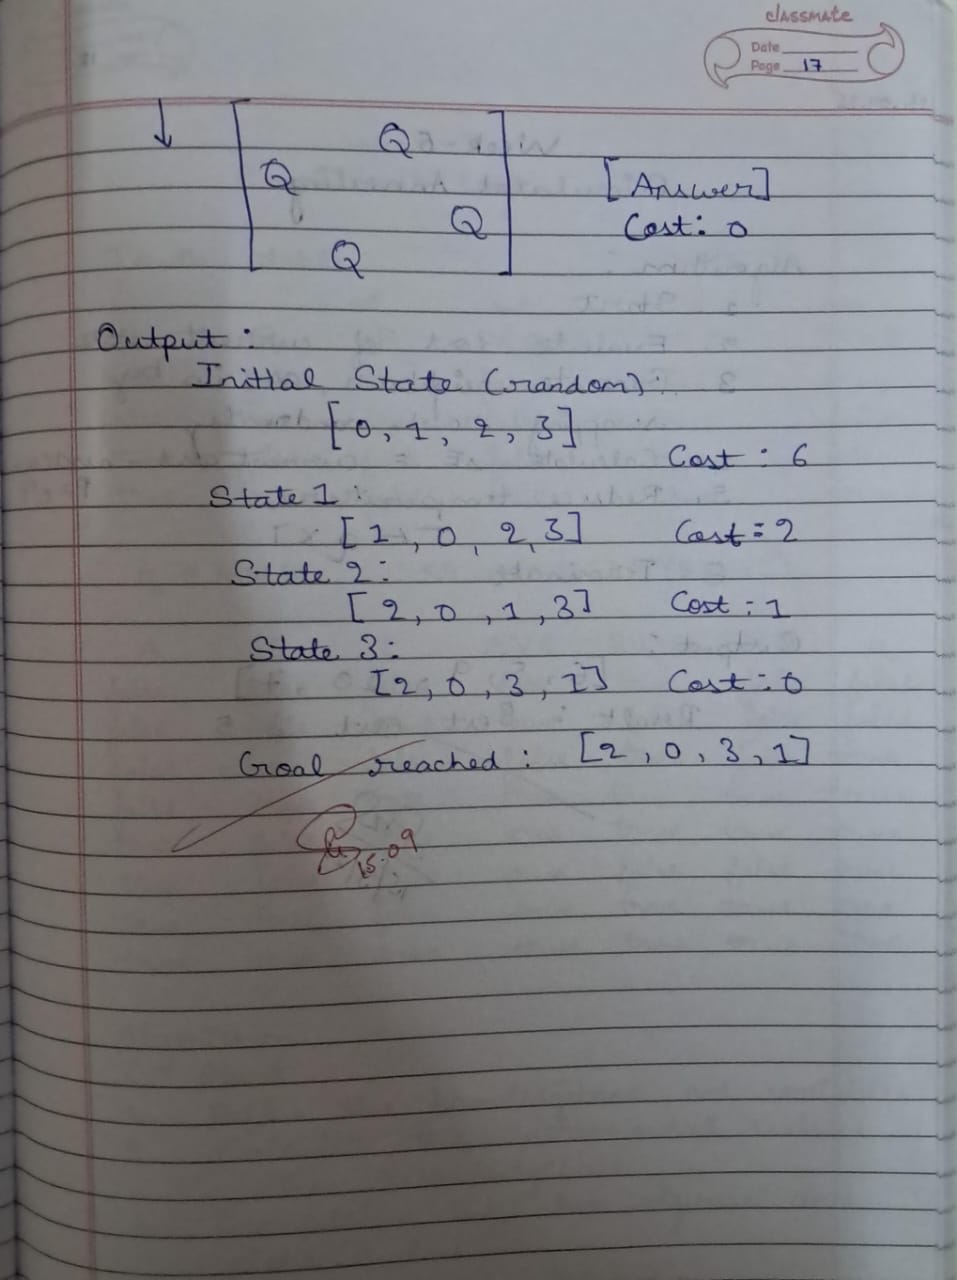 classmate
Date
Page 17
↓
Q
Q
[Answer]
Q
Cost: 0
Q
Output :
Initial State (random):
[0, 1, 2, 3]
Cost : 6
State 1 :
[1, 0, 2, 3] Cost = 2
State 2:
[2, 0, 1, 3] Cost : 1
State 3:
[2, 0, 3, 1] Cost : 0
Goal reached : [2, 0, 3, 1]
15.09